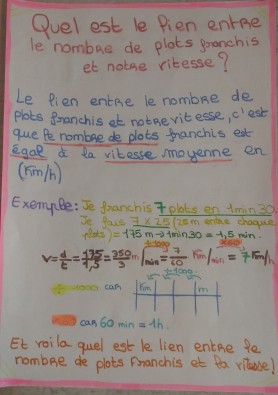 Quel est le lien entre
le nombre de plots franchis
et notre vitesse ?
Le lien entre le nombre de
plots franchis et notre vitesse, c'est
que le nombre de plots franchis est
égal à la vitesse moyenne en
(Km/h)
Exemple: Je franchis 7 plots en 1min30
Je fais 7 x 25 (25 m entre chaque
plots) = 175 m → 1min30 = 1,5 min.
÷1000 x60
V = d/t = 175/1,5 = 350/3 m/min = 7/60 Km/min = 7 Km/h
÷1000
÷1000 car Km m
x60 car 60 min = 1h.
Et voila quel est le lien entre le
nombre de plots franchis et la vitesse !